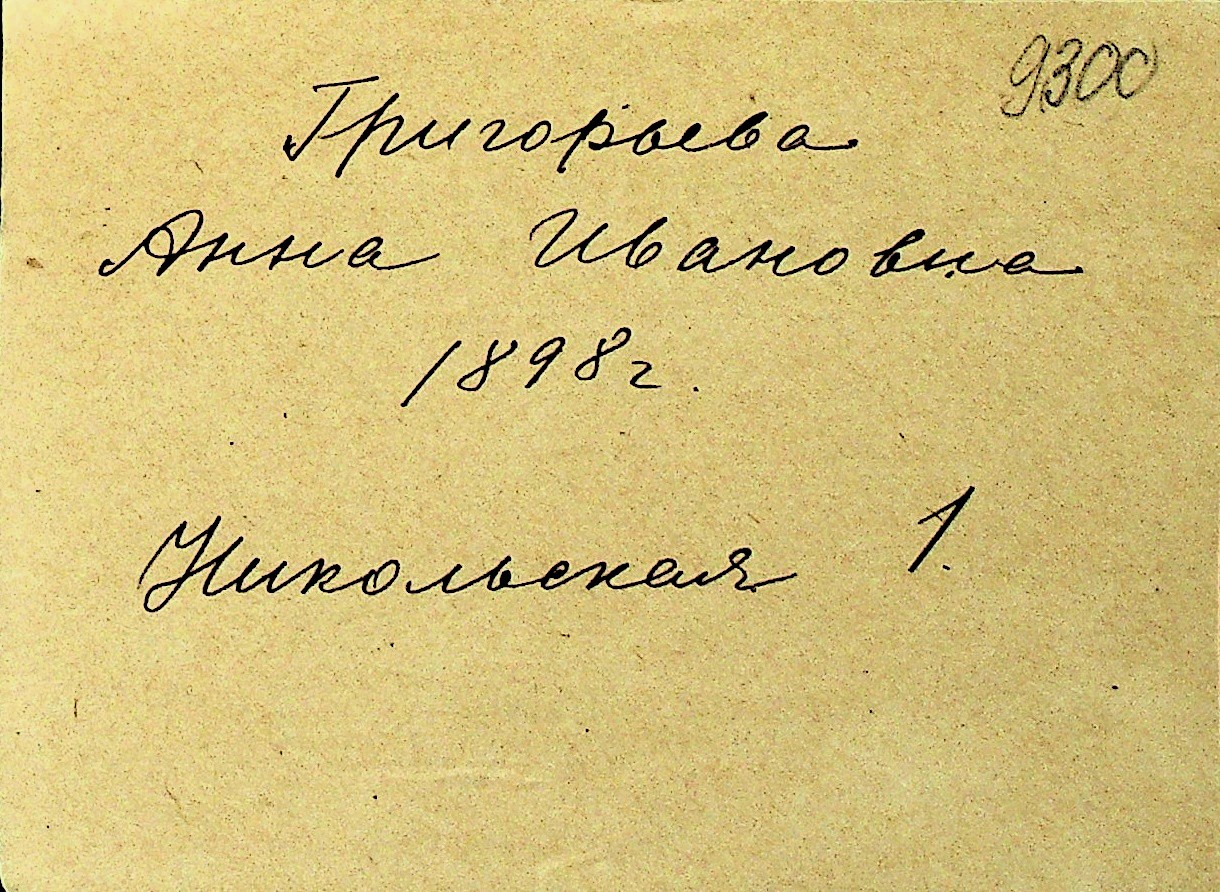 9300
Григорьева
Анна Ивановна
1898г.
Никольская 1.